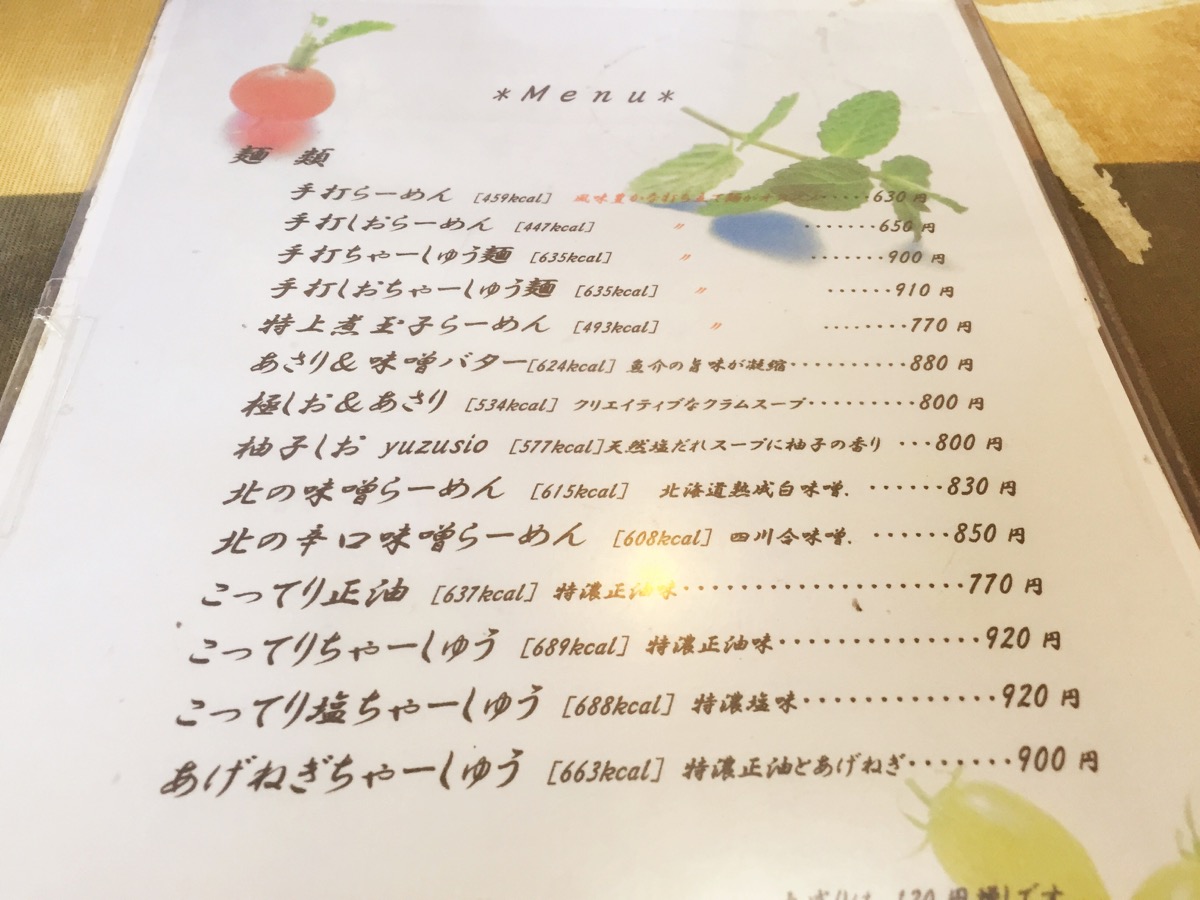 *Menu*
麺 類
手打らーめん [459kcal] 風味豊かな打ち立て麺が ・・・・・630 円
手打しおらーめん [447kcal] 〃 ・・・・・・・650 円
手打ちゃーしゅう麺 [635kcal] 〃 ・・・・・・・900 円
手打しおちゃーしゅう麺 [635kcal] 〃 ・・・・・・910 円
特上煮玉子らーめん [493kcal] 〃 ・・・・・・・・770 円
あさり&味噌バター[624kcal] 魚介の旨味が凝縮・・・・・・・・・・880 円
極しお&あさり [534kcal] クリエイティブなクラムスープ・・・・・・・・・800 円
柚子しお yuzusio [577kcal]天然塩だれスープに柚子の香り ・・・800 円
北の味噌らーめん [615kcal] 北海道熟成白味噌. ・・・・・・830 円
北の辛口味噌らーめん [608kcal] 四川合味噌. ・・・・・・850 円
こってり正油 [637kcal] 特濃正油味・・・・・・・・・・・・・・・・・・・770 円
こってりちゃーしゅう [689kcal] 特濃正油味・・・・・・・・・・・・・・920 円
こってり塩ちゃーしゅう [688kcal] 特濃塩味・・・・・・・・・・・・・920 円
あげねぎちゃーしゅう [663kcal] 特濃正油とあげねぎ・・・・・・・900 円